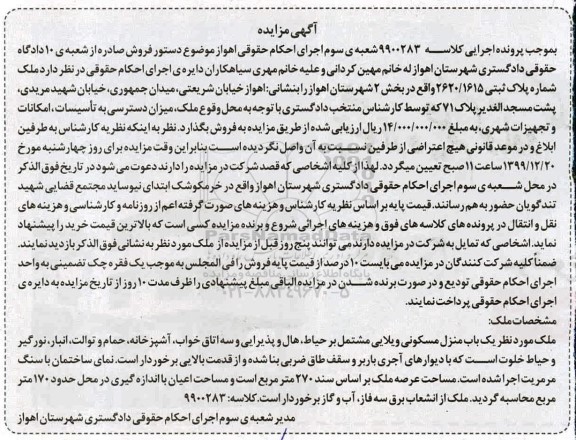 آگهی مزایده
بموجب پرونده اجرایی کلاسه 9900283 شعبه ی سوم اجرای احکام حقوقی اهواز موضوع دستور فروش صادره از شعبه ی 10 دادگاه
حقوقی دادگستری شهرستان اهواز له خانم مهین کردانی و علیه خانم مهری سیاهکاران دایره ی اجرای احکام حقوقی در نظر دارد ملک
شماره پلاک ثبتی 2620/1615 واقع در بخش 2 شهرستان اهواز را بنشانی: اهواز خیابان شریعتی، میدان جمهوری، خیابان شهید مریدی،
پشت مسجد الغدیر پلاک 71 که توسط کارشناس منتخب دادگستری با توجه به محل وقوع ملک، میزان دسترسی به تأسیسات، امکانات
و تجهیزات شهری، به مبلغ 14/000/000/000 ریال ارزیابی شده از طریق مزایده به فروش بگذارد. نظر به اینکه نظریه کارشناس به طرفین
ابلاغ و در موعد قانونی هیچ اعتراضی از طرفین نسبت به آن واصل نگردیده است بنابراین وقت مزایده برای روز چهارشنبه مورخ
1399/12/20 ساعت 11 صبح تعیین میگردد. لهذا از کلیه اشخاصی که قصد شرکت در مزایده را دارند دعوت می شود در تاریخ فوق الذکر
در محل شعبه ی سوم اجرای احکام حقوقی دادگستری شهرستان اهواز واقع در خرمکوشک ابتدای نیوساید مجتمع قضایی شهید
تندگویان حضور به هم رسانند. قیمت پایه بر اساس نظریه کارشناس و هزینه های صورت گرفته اعم از روزنامه و کارشناسی و هزینه های
نقل و انتقال در پرونده های کلاسه های فوق و هزینه های اجرائی شروع و برنده مزایده کسی است که بالاترین قیمت خرید را پیشنهاد
نماید. اشخاصی که تمایل به شرکت در مزایده دارند می توانند پنج روز قبل از مزایده از ملک مورد نظر به نشانی فوق الذکر بازدید نمایند.
ضمناً کلیه شرکت کنندگان در مزایده می بایست 10 درصد از قیمت پایه فروش را فی المجلس به موجب یک فقره چک تضمینی به واحد
اجرای احکام حقوقی تودیع و در صورت برنده شدن در مزایده الباقی مبلغ پیشنهادی را ظرف مدت 10 روز از تاریخ مزایده به دایره ی
اجرای احکام حقوقی پرداخت نمایند.
مشخصات ملک:
ملک مورد نظر یک باب منزل مسکونی ویلایی مشتمل بر حیاط، هال و پذیرایی و سه اتاق خواب، آشپزخانه، حمام و توالت، انبار، نورگیر
و حیاط خلوت است که با دیوارهای آجری باربر و سقف طاق ضربی بنا شده و از قدمت بالایی برخوردار است. نمای ساختمان با سنگ
مرمریت اجرا شده است. مساحت عرصه ملک بر اساس سند 270 متر مربع است و مساحت اعیان با اندازه گیری در محل حدود 170 متر
مربع محاسبه گردید. ملک از انشعاب برق سه فاز، آب و گاز برخوردار است. کلاسه: 9900283
مدیر شعبه ی سوم اجرای احکام حقوقی دادگستری شهرستان اهواز